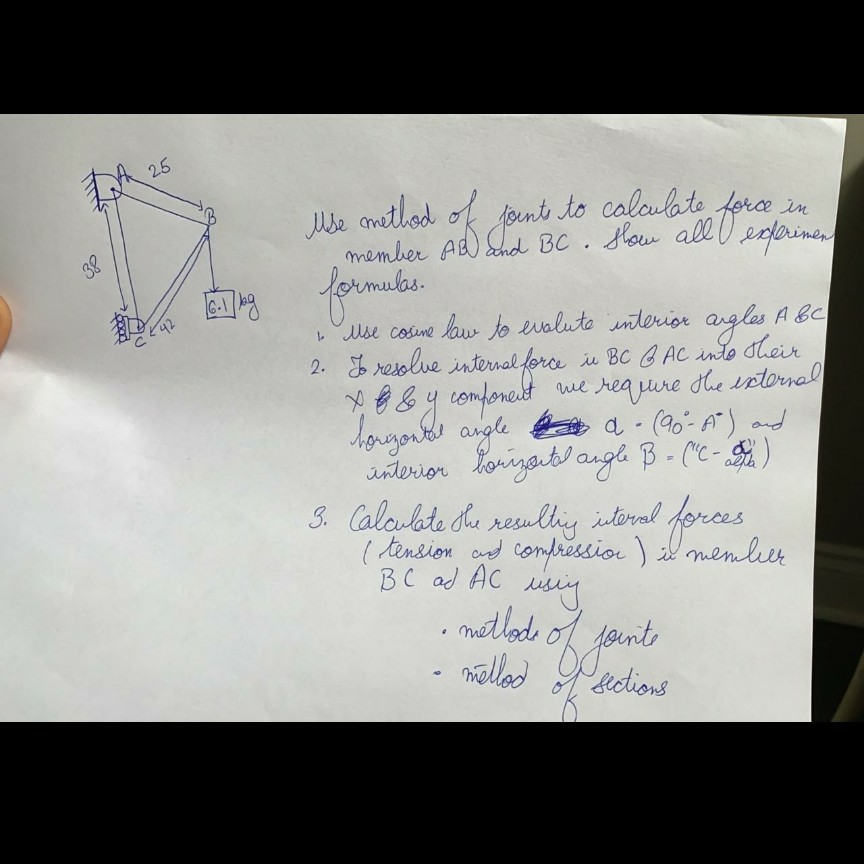 A 25
B
38
6.1 kg
C 42
Use method of joints to calculate force in
member AB and BC. Show all experimen
formulas.
1. Use cosine law to evalute interior angles A B C
2. To resolve internal force in BC & AC into their
x & y component we require the external
horizontal angle α = (90° - A°) and
interior horizontal angle B = ("C - alpha")
3. Calculate the resulting interal forces
(tension and compression) in member
BC ad AC using
• methods of joints
• method of sections